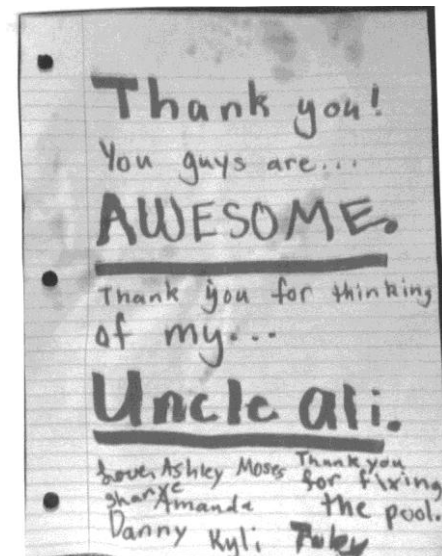 Thank you!
You guys are...
AWESOME.
Thank you for thinking
of my...
Uncle ali.
Love, Ashley Moses
Amanda
Danny Kyli
Thank you
for fixing
the pool.